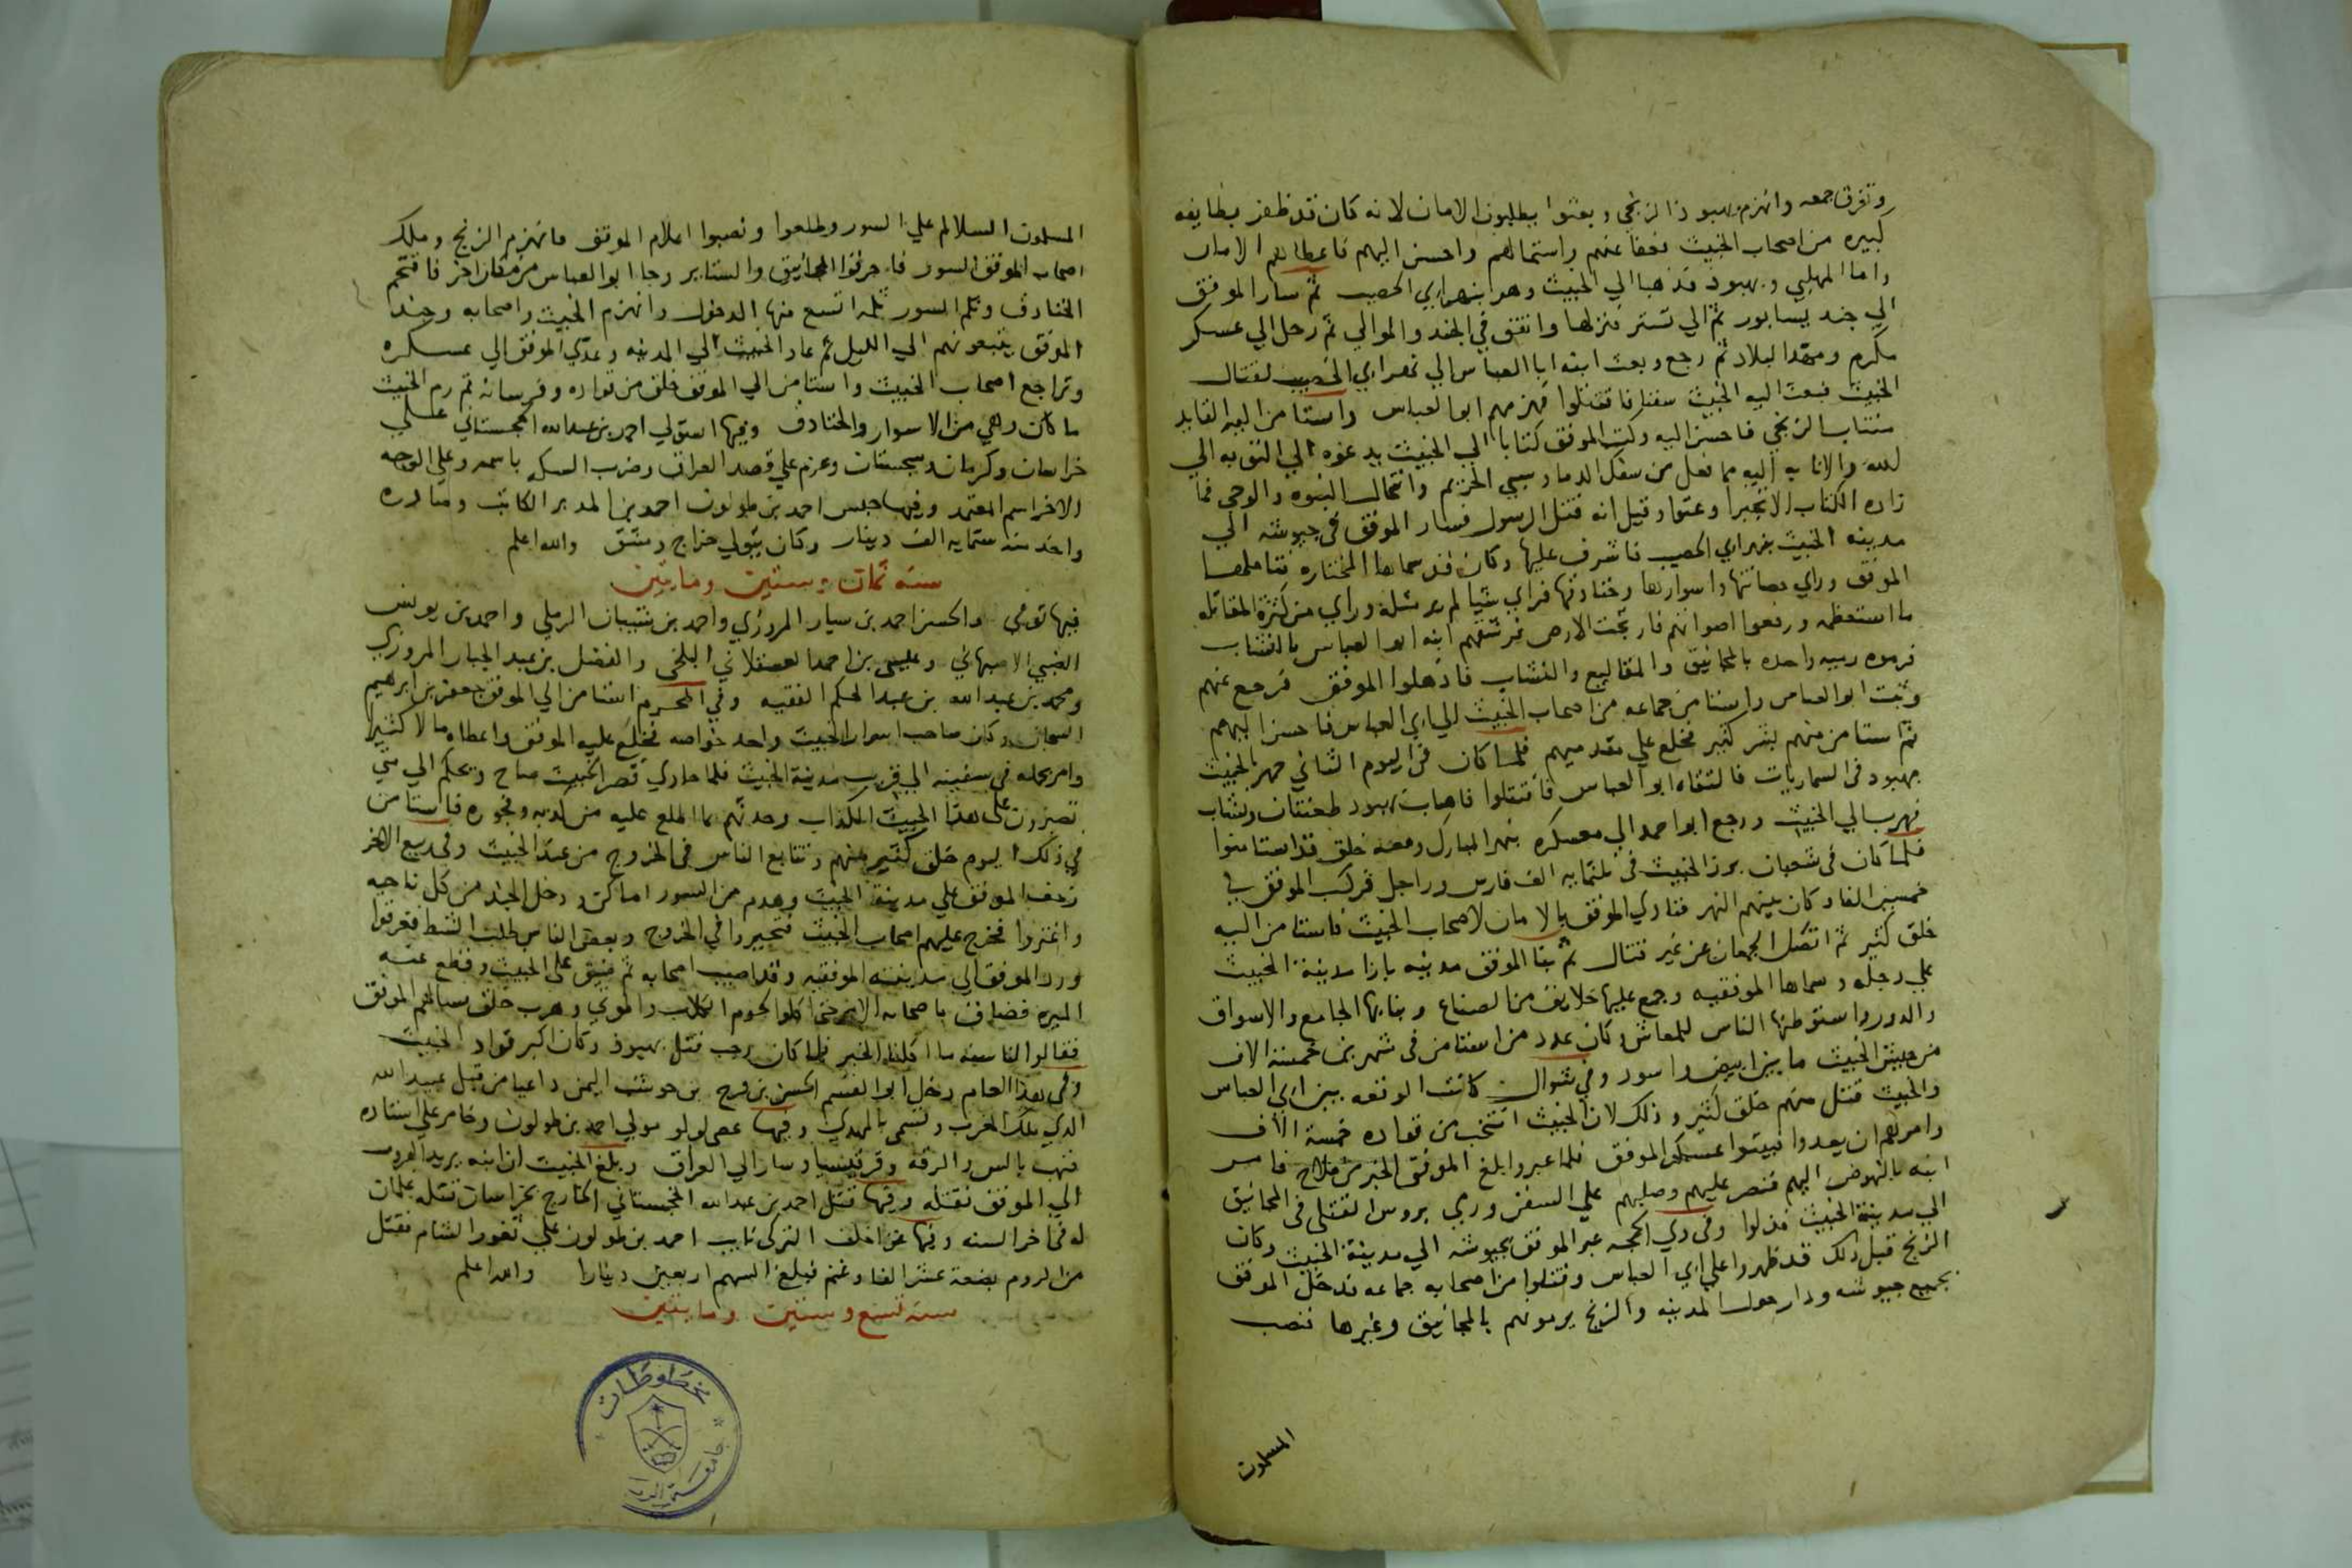 وتفرق جمعه وانهزم بهبوذ الزنجي وبعثوا يطلبون الامان لانه كان قد ظفر بطايفه
كبيره من اصحاب الخبيث فعفا عنهم واستمالهم واحسن اليهم فاعطاهم الامان
واما المهلبي وبهبوذ فذهبا الي الخبيث وهو بنهر ابي الخصيب ثم سار الموفق
الي جند يسابور ثم الي تستر فنزلها وانفق في الجند والموالي ثم رحل الي عسكر
مكرم ومهد البلاد ثم رجع وبعث ابنه ابا العباس الي نهر ابي الخصيب لقتال
الخبيث فبعث اليه الخبيث سفنا فاقتتلوا فهزمهم ابو العباس واستامن اليه القايد
منتاب الزنجي فاحسن اليه وكتب الموفق كتابا الي الخبيث يدعوه الي التوبه الي
الله والانابه اليه مما فعل من سفك الدما وسبي الحريم وانتحال النبوه والوحي فما
زاده الكتاب الا تجبرا وعتوا وقيل انه قتل الرسول فسار الموفق في جيوشه الي
مدينه الخبيث بنهر ابي الخصيب فاشرف عليها وكان قد سماها المختاره فتاملها
الموفق وراي حصانتها واسوارها وخنادقها فراي شيا لم ير مثله وراي من كثرة المقاتله
ما استعظمه ورفعوا اصواتهم فارتجت الارض فرشقهم ابنه ابو العباس بالنشاب
فرموه رميه واحده بالمجانيق والمقاليع والنشاب فاذهلوا الموفق فرجع عنهم
وثبت ابو العباس واستامن جماعه من اصحاب الخبيث الي ابي العباس فاحسن اليهم
ثم استامن منهم بشر كثير فخلع علي مقدميهم فلما كان في اليوم الثاني جهز الخبيث
بهبوذ في السماريات فالتقاه ابو العباس فاقتتلوا فاصاب بهبوذ طعنتان ونشاب
فهرب الي الخبيث ورجع ابو احمد الي معسكره بنهر المبارك ومعه خلق قد استامنوا
فلما كان في شعبان برز الخبيث في ثلثمايه الف فارس وراجل فركب الموفق في
خمسين الفا وكان بينهم النهر فنادي الموفق بالامان لاصحاب الخبيث فاستامن اليه
خلق كثير ثم انفصل الجمعان عن غير قتال ثم بنا الموفق مدينه بازا مدينة الخبيث
علي دجله وسماها الموفقيه وجمع عليها خلايق من الصناع وبنا بها الجامع والاسواق
والدور واستوطنها الناس للمعاش وكان عدد من استامن في شهرين خمسة الاف
من جيش الخبيث ما بين ابيض واسود وفي شوال كانت الوقعه بين ابي العباس
والخبيث قتل منهم خلق كثير وذلك لان الخبيث انتخب من قواده خمسة الاف
وامرهم ان يعدوا فيبيتوا عسكر الموفق فلما عبروا بلغ الموفق الخبر من ملاح فامر
ابنه بالنهوض اليهم فنصر عليهم وصلبهم علي السفن ورمي بروس القتلي في المجانيق
الي مدينة الخبيث فذلوا وفي ذي الحجه عبر الموفق بجيوشه الي مدينة الخبيث وكان
الزنج قبل ذلك قد ظهروا علي ابي العباس وقتلوا من اصحابه جماعه فدخل الموفق
بجميع جيوشه ودار حول المدينه والزنج يرمونهم بالمجانيق وغيرها فنصب
المسلمون
المسلمون السلالم علي السور وطلعوا ونصبوا اعلام الموفق فانهزم الزنج وملك
اصحاب الموفق السور فاحرقوا المجانيق والستاير وجا ابو العباس من مكان اخر فاقتحم
الخنادق وثلم السور ثلمه اتسع منها الدخول وانهزم الخبيث واصحابه وجند
الموفق يتبعونهم الي الليل ثم عاد الخبيث الي المدينه وعدي الموفق الي عسكره
وتراجع اصحاب الخبيث واستامن الي الموفق خلق من قواده وفرسانه ثم رم الخبيث
ما كان وهي من الاسوار والخنادق وفيها استولي احمد بن عبدالله الخجستاني علي
خراسان وكرمان وسجستان وعزم علي قصد العراق وضرب السكه باسمه وعلي الوجه
الاخر اسم المعتمد وفيها حبس احمد بن طولون احمد بن المدبر الكاتب وصادره
واخذ منه ستمايه الف دينار وكان يتولي خراج دمشق والله اعلم
سنه ثمان وستين ومايتين
فيها توفي الحسن احمد بن سيار المروزي واحمد بن شيبان الرملي واحمد بن يونس
الضبي الاصبهاني وعيسي بن احمد العسقلاني البلخي والفضل بن عبد الجبار المروزي
ومحمد بن عبد الله بن عبد الحكم الفقيه وفي المحرم استامن الي الموفق جعفر بن ابرهيم
السجان وكان صاحب اسرار الخبيث واحد خواصه فخلع عليه الموفق واعطاه مالا كثيرا
وامر بحمله في سفينه الي قرب مدينة الخبيث فلما حاذي قصر الخبيث صاح ويحكم الي متي
تصبرون علي هذا الخبيث الكذاب وحدثهم بما اطلع عليه من كذبه وفجوره فاستامن
في ذلك اليوم خلق كثير منهم وتتابع الناس في الخروج من عند الخبيث وفي ربيع الاخر
زحف الموفق علي مدينة الخبيث وهدم من السور اماكن ودخل الجند من كل ناحيه
واغتروا فخرج عليهم اصحاب الخبيث فتحيروا في الخروج وبعض الناس طلب الشط فغرقوا
ورد الموفق الي مدينته الموفقيه وقد اصيب اصحابه ثم ضيق علي الخبيث وقطع عنه
الميره فضاق باصحابه الامر حتي اكلوا لحوم الكلاب والموتي وهرب خلق فسالهم الموفق
فقالوا لنا سنه ما اكلنا الخبز فلما كان رجب قتل بهبوذ وكان اكبر قواد الخبيث
وفي هذا العام دخل ابو القسم الحسن بن فرح بن حوشب اليمن داعيا من قبل عبيد الله
الذي ملك المغرب وتسمي بالمهدي وفيها عصي لولو مولي احمد بن طولون وخامر علي استاذه
فنهب بالس والرقه وقرقيسيا وسار الي العراق وبلغ الخبيث ان ابنه يريد الهروب
الي الموفق فقتله وفيها قتل احمد بن عبد الله الخجستاني الخارج بخراسان قتله غلمان
له في اخر السنه وفيها غزا خلف التركي نايب احمد بن طولون علي ثغور الشام فقتل
من الروم بضعة عشر الفا وغنم فبلغ السهم اربعين دينارا والله اعلم
سنه تسع وستين ومايتين
مخطوطات
جامعة